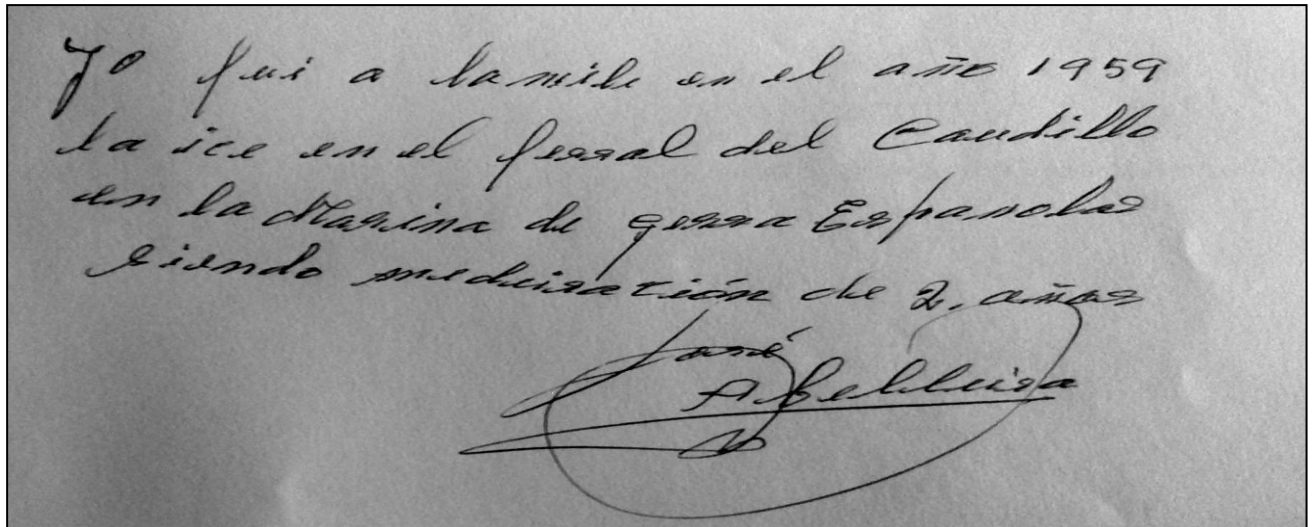 Yo fui a la mili en el año 1959
la ice en el ferral del Caudillo
en la Marina de gerra Española
siendo me duración de 2. años
José
Abelleira